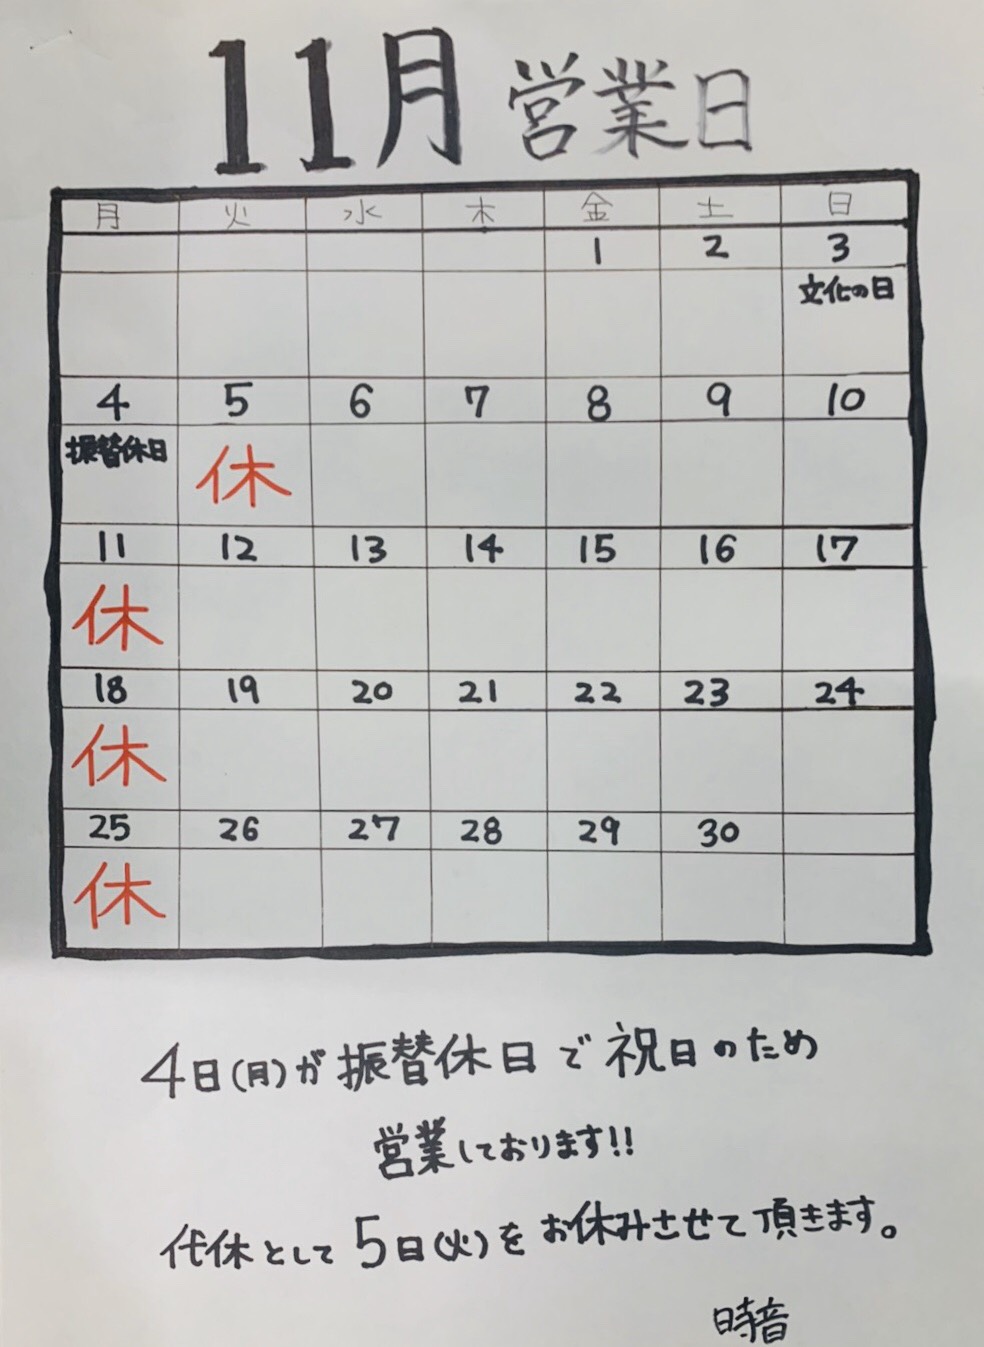 11月 営業日
月 火 水 木 金 土 日
1 2 3
文化の日
4 5 6 7 8 9 10
振替休日 休
11 12 13 14 15 16 17
休
18 19 20 21 22 23 24
休
25 26 27 28 29 30
休
4日(月)が振替休日で祝日のため
営業しております!!
代休として5日(火)をお休みさせて頂きます。
時音